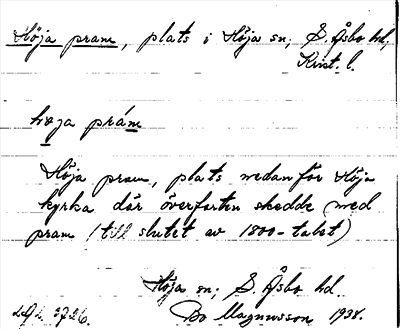 Höja pram, plats i Höja sn; S. Åsbo hd,
Krist. l.
höga pråm
Höja pram, plats nedanför Höja
kyrka där överfarten skedde med
pram (till slutet av 1800-talet)
Höja sn; S. Åsbo hd.
Bo Magnusson 1938.